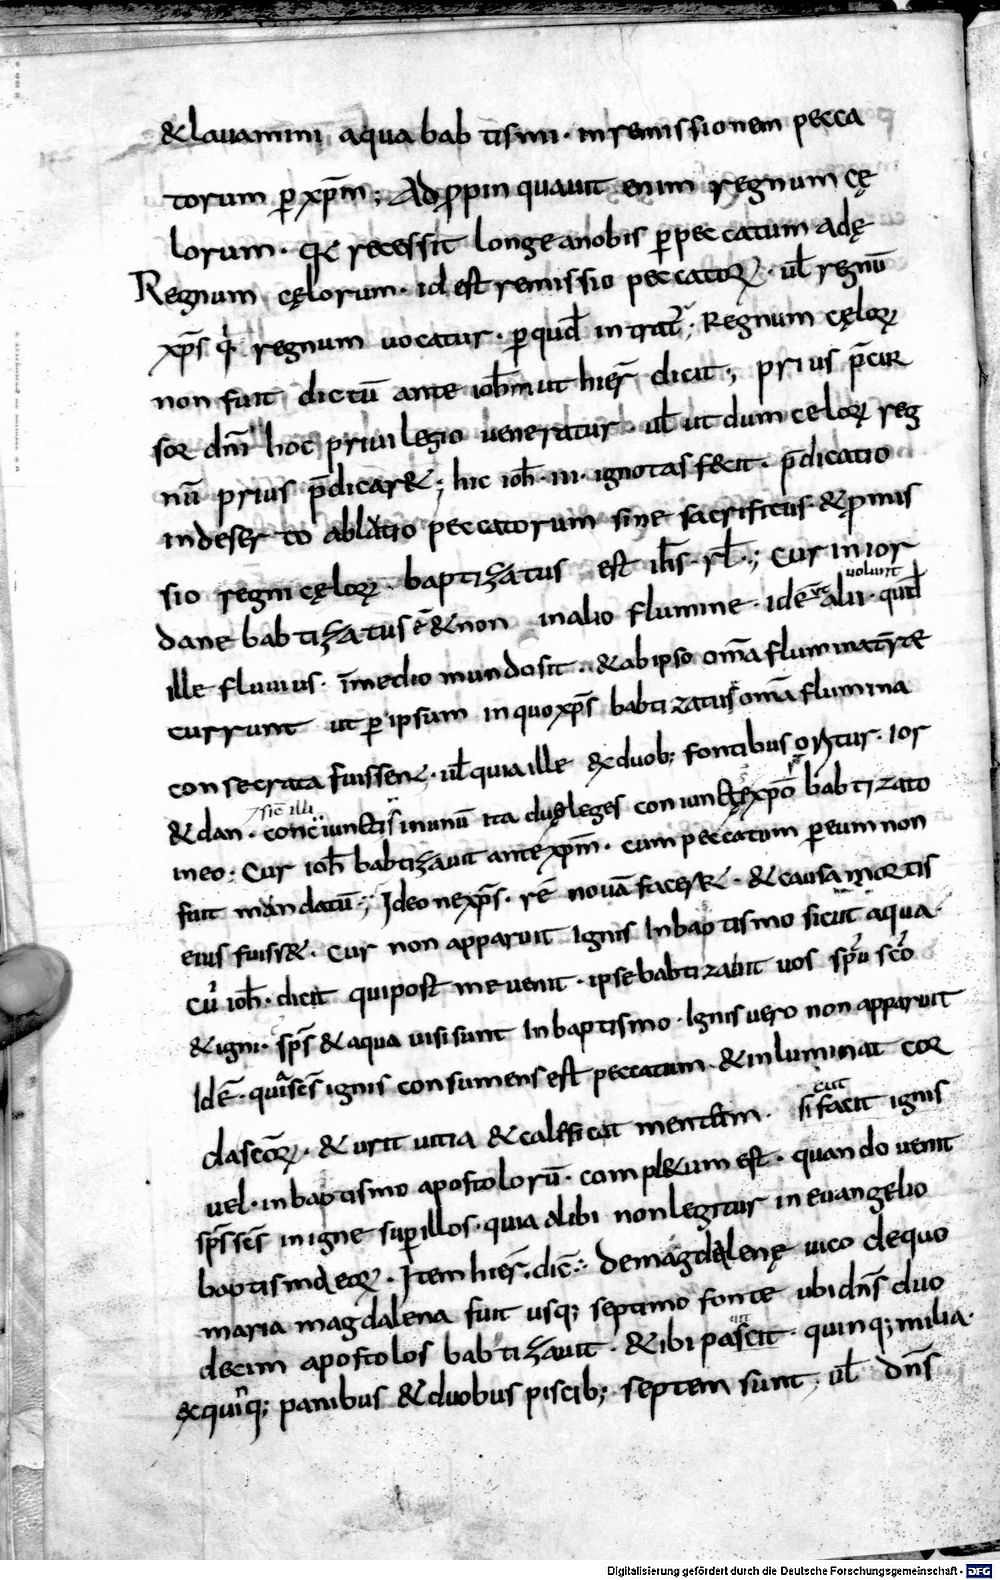 &lauamini aqua bab tismi · in remissionem pecca
torum ꝑ xp̄m ; Adꝓpin quauit enim regnum cę
lorum · recessit longe anobis ꝑ peccatum adę
Regnum cęlorum · id est remissio peccatoꝝ · ul̄ regnū
xp̄s regnum uocatur · ꝑ quod̄ intrat᷑ ; Regnum cęloꝝ
non fuit dictū ante ioh̄m ut hier̄ dicit ; prius p̄cur
sor dn̄i hoc priuilegio ueneratur · ul̄ ut dum celoꝝ reg
nū prius p̄dicar& ; hic ioh̄ · iii · ignotas fecit · p̄dicatio
indeser to ablatio peccatorum sine sacrificiis · & ꝓmis
sio regni cęloꝝ · baptizatus est ih̄s · rl̄ · ; Cur in ior
dane babtizatus ē & non in alio flumine · idē ut alii uolunt · quod̄
ille fluuius · in medio mundo sit · & ab ipso om̄a flumina
currunt ut ꝑ ipsum in quo xp̄s babtizatus om̄a flumina
consecrata fuissent · ul̄ quia ille ex duob; fontibus oritur · Ior
& dan · sic illi coniunctis in unū ita duę leges coniunctę xp̄o babtizato
in eo · Cur ioh̄ babtizauit ante xp̄m · cum peccatum ꝑ eum non
fuit mandatū ; Ideo ne xp̄s · rē nouā facer& · & causa mortis
eius fuiss& · Cur non apparuit Ignis In baptismo sicut aqua ·
Cū ioh̄ · dicit qui post me uenit · ipse babtizabit uos sp̄u sc̄o
& igni · sp̄s & aqua uisi sunt In baptismo · Ignis uero non apparuit
Idē · quia sc̄s ignis consumens est peccatum · & inluminat cor
da sc̄oꝝ · & urit uitia & calificat mentem · sicut facit ignis
uel · in baptismo apostolorū · compl&um est · quando uenit
sp̄s sc̄s in igne suꝑ illos · quia alibi non legitur in euangelio
baptismū eoꝝ · Item hier̄ · dic̄ · : De magdalenę uico de quo
maria magdalena fuit usq; septimo fonte ubi dn̄s duo
decim apostolos babtizauit · & ibi pascit · quinq; milia ·
ex quinq; panibus & duobus piscib; septem sunt , ul̄ dn̄s